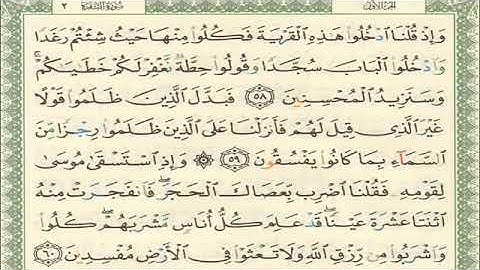 الجزء الأول سورة البقرة ٢
وَإِذْ قُلْنَا ادْخُلُوا هَٰذِهِ الْقَرْيَةَ فَكُلُوا مِنْهَا حَيْثُ شِئْتُمْ رَغَدًا
وَادْخُلُوا الْبَابَ سُجَّدًا وَقُولُوا حِطَّةٌ نَغْفِرْ لَكُمْ خَطَايَاكُمْ ۚ
وَسَنَزِيدُ الْمُحْسِنِينَ ٥٨ فَبَدَّلَ الَّذِينَ ظَلَمُوا قَوْلًا
غَيْرَ الَّذِي قِيلَ لَهُمْ فَأَنْزَلْنَا عَلَى الَّذِينَ ظَلَمُوا رِجْزًا مِنَ
السَّمَاءِ بِمَا كَانُوا يَفْسُقُونَ ٥٩ ۞ وَإِذِ اسْتَسْقَىٰ مُوسَىٰ
لِقَوْمِهِ فَقُلْنَا اضْرِبْ بِعَصَاكَ الْحَجَرَ ۖ فَانْفَجَرَتْ مِنْهُ
اثْنَتَا عَشْرَةَ عَيْنًا ۖ قَدْ عَلِمَ كُلُّ أُنَاسٍ مَشْرَبَهُمْ ۖ كُلُوا
وَاشْرَبُوا مِنْ رِزْقِ اللَّهِ وَلَا تَعْثَوْا فِي الْأَرْضِ مُفْسِدِينَ ٦٠